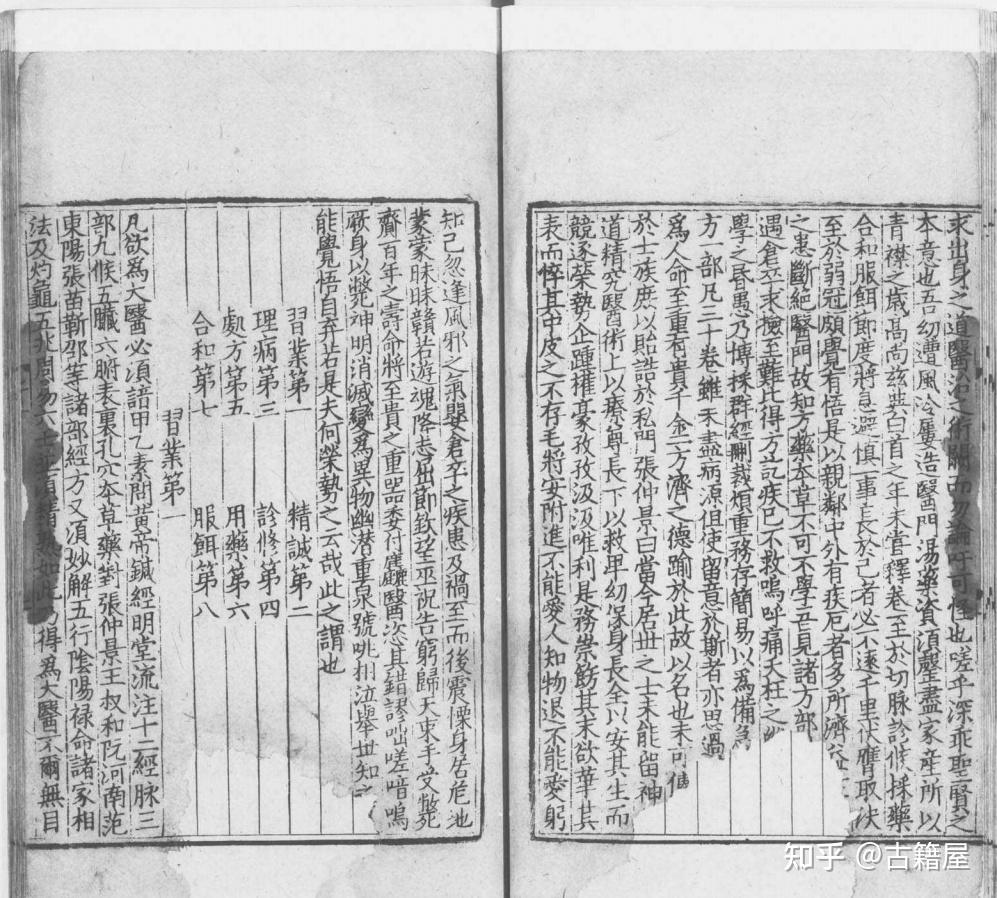 求出身之道醫治之術闕而勿論吁可怪也嗟乎深乖聖賢之
本意也吾幼遭風冷屢造醫門湯藥資湏罄盡家産所以
青襟之歲髙尚兹典白首之年未嘗釋卷至於切脉診候採藥
合和服餌節度將息避慎一事長於己者必不遠千里伏膺取决
至於弱冠頗覺有悟是以親鄰中外有疾厄者多所濟益
之患斷絕醫門故知方藥本草不可不學吾見諸方部
遇倉卒求檢至難比得方訖疾已不救嗚呼痛夭枉之
學之昏愚乃博採群經刪裁煩重務存簡易以爲備急
方一部凡三十卷雖未盡病源但使留意於斯者亦思過
爲人命至重有貴千金一方濟之德踰於此故以名也未可傳
於士族庶以貽諸於私門張仲景曰當今居世之士未能留神
道精究醫術上以療尊長下以救卑幼保身長全以安其生而
競逐榮勢企踵權豪孜孜汲汲唯利是務崇飭其末欲華其
表而悴其中皮之不存毛將安附進不能愛人知物退不能愛躬
知己忽逢風邪之氣嬰倉卒之疾患及禍至而後震慄身居危地
蒙蒙昧昧贛若遊魂降志屈節欽望巫祝告窮歸天束手受斃
齎百年之壽命將至貴之重器委付庸醫恣其錯謬咄嗟喑嗚
厥身以斃神明消滅變爲異物幽潛重泉號咷相泣舉世知之
能覺悟自弃若是夫何榮勢之云哉此之謂也
習業第一 精誠第二
理病第三 診修第四
處方第五 用藥第六
合和第七 服餌第八
習業第一
凡欲爲大醫必湏諳甲乙素問黄帝鍼經明堂流注十二經脉三
部九候五臟六腑表裏孔穴本草藥對張仲景王叔和阮河南范
東陽張苗靳邵等諸部經方又湏妙解五行隂陽禄命諸家相
法及灼龜五兆周易六壬並湏精熟如此乃得爲大醫不爾無目
知乎 @古籍屋